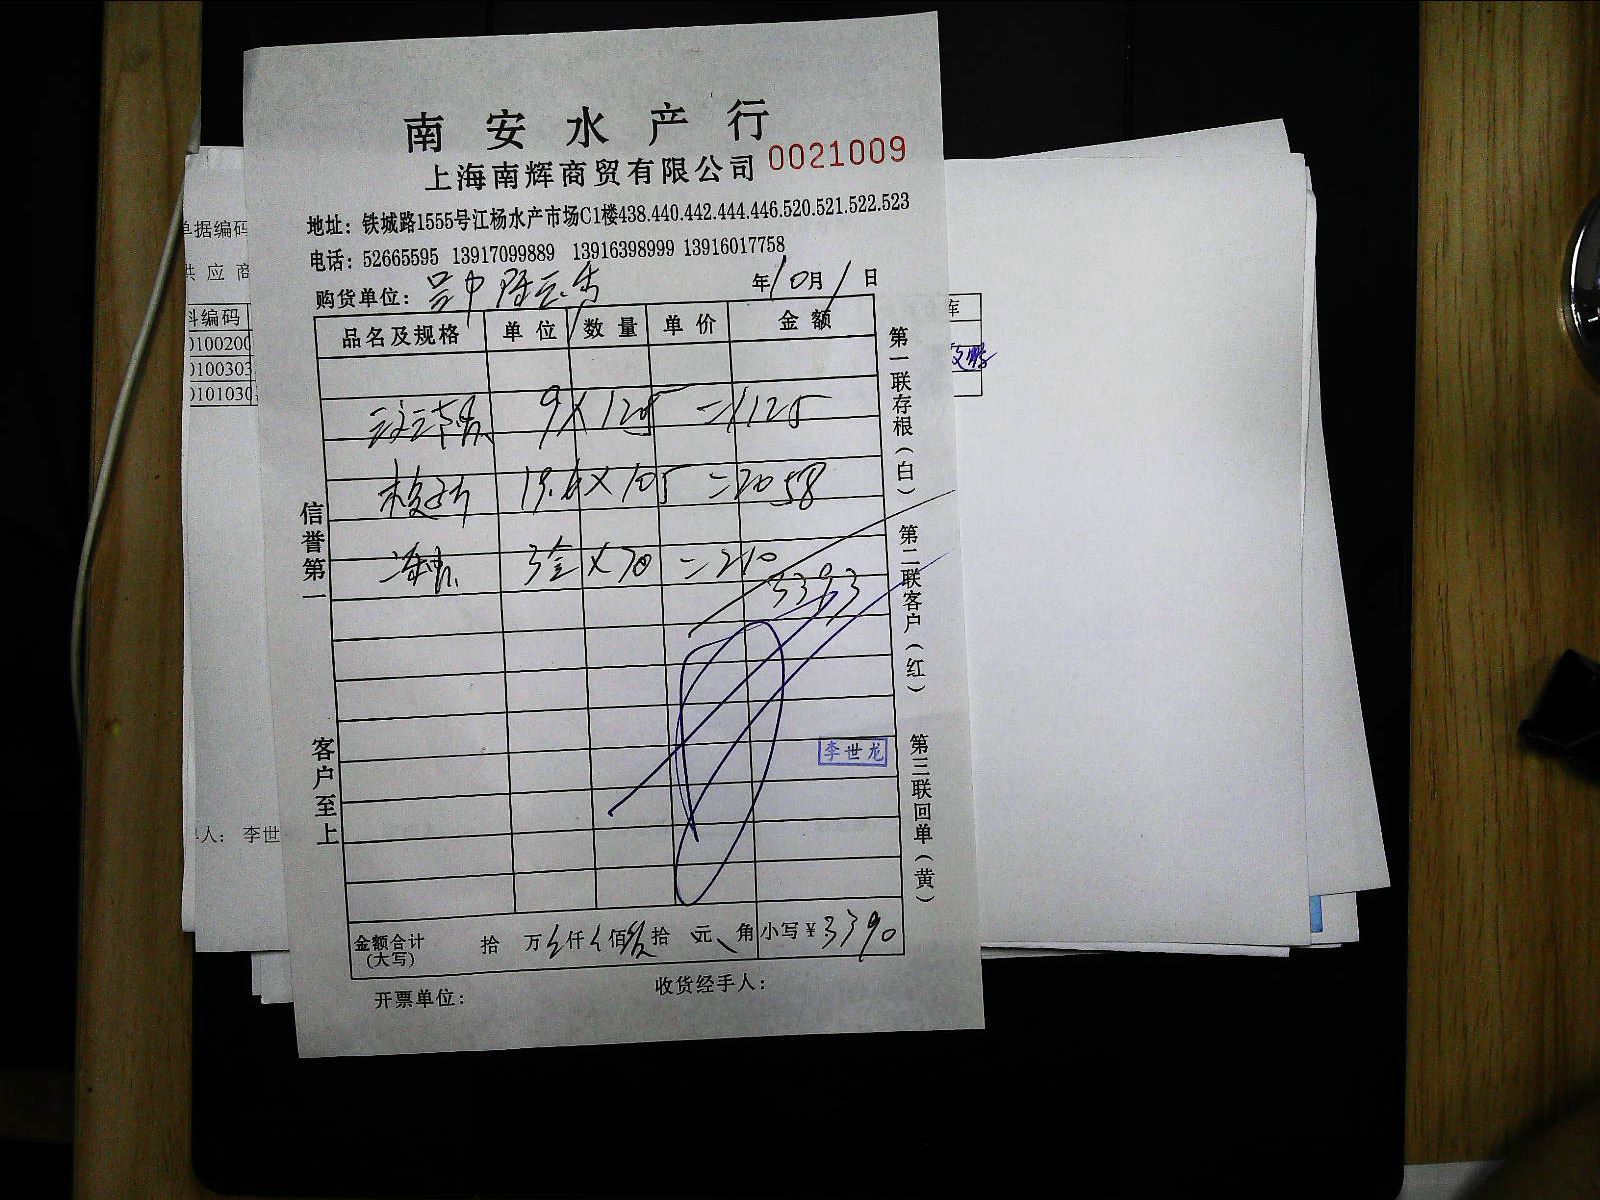 南安水产行
上海南辉商贸有限公司 0021009
地址：铁城路1555号江杨水产市场C1楼438.440.442.444.446.520.521.522.523
电话：52665595 13917099889 13916398999 13916017758
购货单位： 年10月1日
品名及规格 单位 数量 单价 金额
9×125=1125
梭子 19.6×105=2058
3盒×70=210
3393
李世龙
金额合计(大写) 拾 万 仟 佰 拾 元 角 小写￥3390
开票单位：
收货经手人：
信誉第一
客户至上
第一联存根（白）
第二联客户（红）
第三联回单（黄）
单据编码
供应商
料编码
0100200
0100303
0101030
人：李世
库